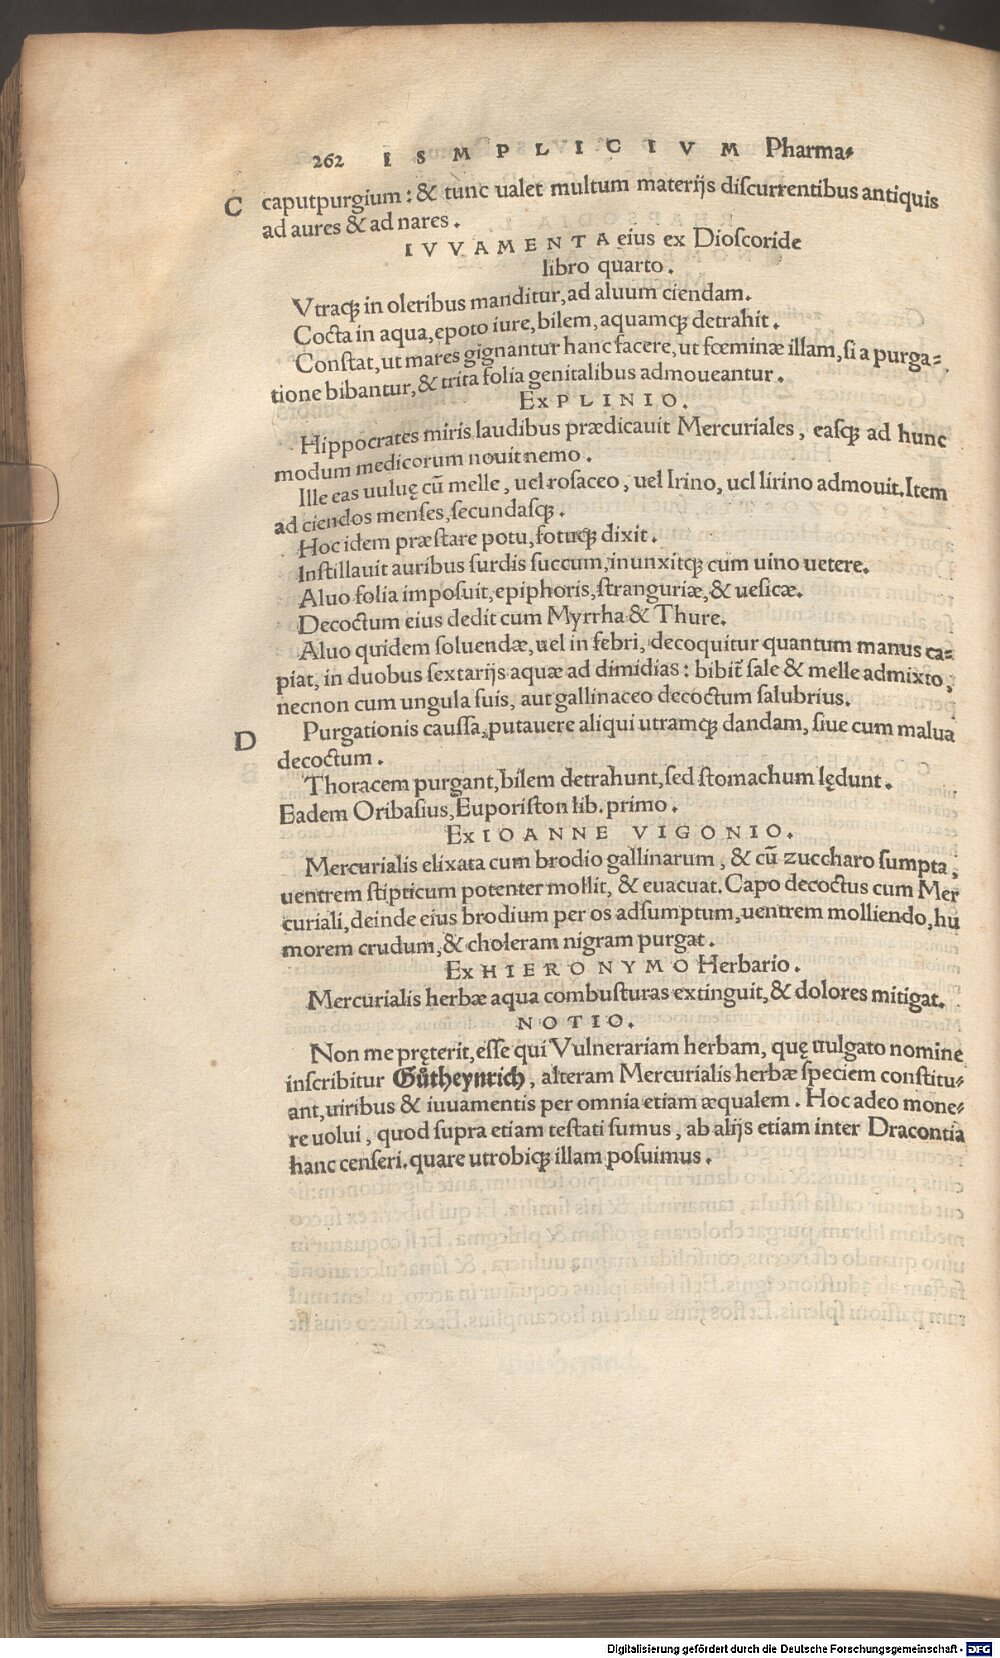 262 I S M P L I C I V M Pharma⸗
C caputpurgium: & tunc ualet multum materijs diſcurrentibus antiquis
ad aures & ad nares.
I V V A M E N T A eius ex Dioſcoride
libro quarto.
Vtraqꝫ in oleribus manditur, ad aluum ciendam.
Cocta in aqua, epoto iure, bilem, aquamqꝫ detrahit.
Conſtat, ut mares gignantur hanc facere, ut fœminæ illam, ſi a purga⸗
tione bibantur, & trita folia genitalibus admoueantur.
Ex P L I N I O.
Hippocrates miris laudibus prædicauit Mercuriales, eaſqꝫ ad hunc
modum medicorum nouit nemo.
Ille eas uuluę cū melle, uel roſaceo, uel Irino, uel lirino admouit. Item
ad ciendos menſes, ſecundaſqꝫ.
Hoc idem præſtare potu, fotuqꝫ dixit.
Inſtillauit auribus ſurdis ſuccum, inunxitqꝫ cum uino uetere.
Aluo folia impoſuit, epiphoris, ſtranguriæ, & ueſicæ.
Decoctum eius dedit cum Myrrha & Thure.
Aluo quidem ſoluendæ, uel in febri, decoquitur quantum manus ca⸗
piat, in duobus ſextarijs aquæ ad dimidias: bibit̃ ſale & melle admixto,
necnon cum ungula ſuis, aut gallinaceo decoctum ſalubrius.
D Purgationis cauſſa, putauere aliqui utramqꝫ dandam, ſiue cum malua
decoctum.
Thoracem purgant, bilem detrahunt, ſed ſtomachum lędunt.
Eadem Oribaſius, Euporiſton lib. primo.
Ex I O A N N E V I G O N I O.
Mercurialis elixata cum brodio gallinarum, & cū zuccharo ſumpta,
uentrem ſtipticum potenter mollit, & euacuat. Capo decoctus cum Mer
curiali, deinde eius brodium per os adſumptum, uentrem molliendo, hu
morem crudum, & choleram nigram purgat.
Ex H I E R O N Y M O Herbario.
Mercurialis herbæ aqua combuſturas extinguit, & dolores mitigat.
N O T I O.
Non me pręterit, eſſe qui Vulnerariam herbam, quę uulgato nomine
inſcribitur Gůtheynrich, alteram Mercurialis herbæ ſpeciem conſtitu⸗
ant, uiribus & iuuamentis per omnia etiam æqualem. Hoc adeo mone⸗
re uolui, quod ſupra etiam teſtati ſumus, ab alijs etiam inter Dracontia
hanc cenſeri. quare utrobiqꝫ illam poſuimus.
Digitalisierung gefördert durch die Deutsche Forschungsgemeinschaft - DFG